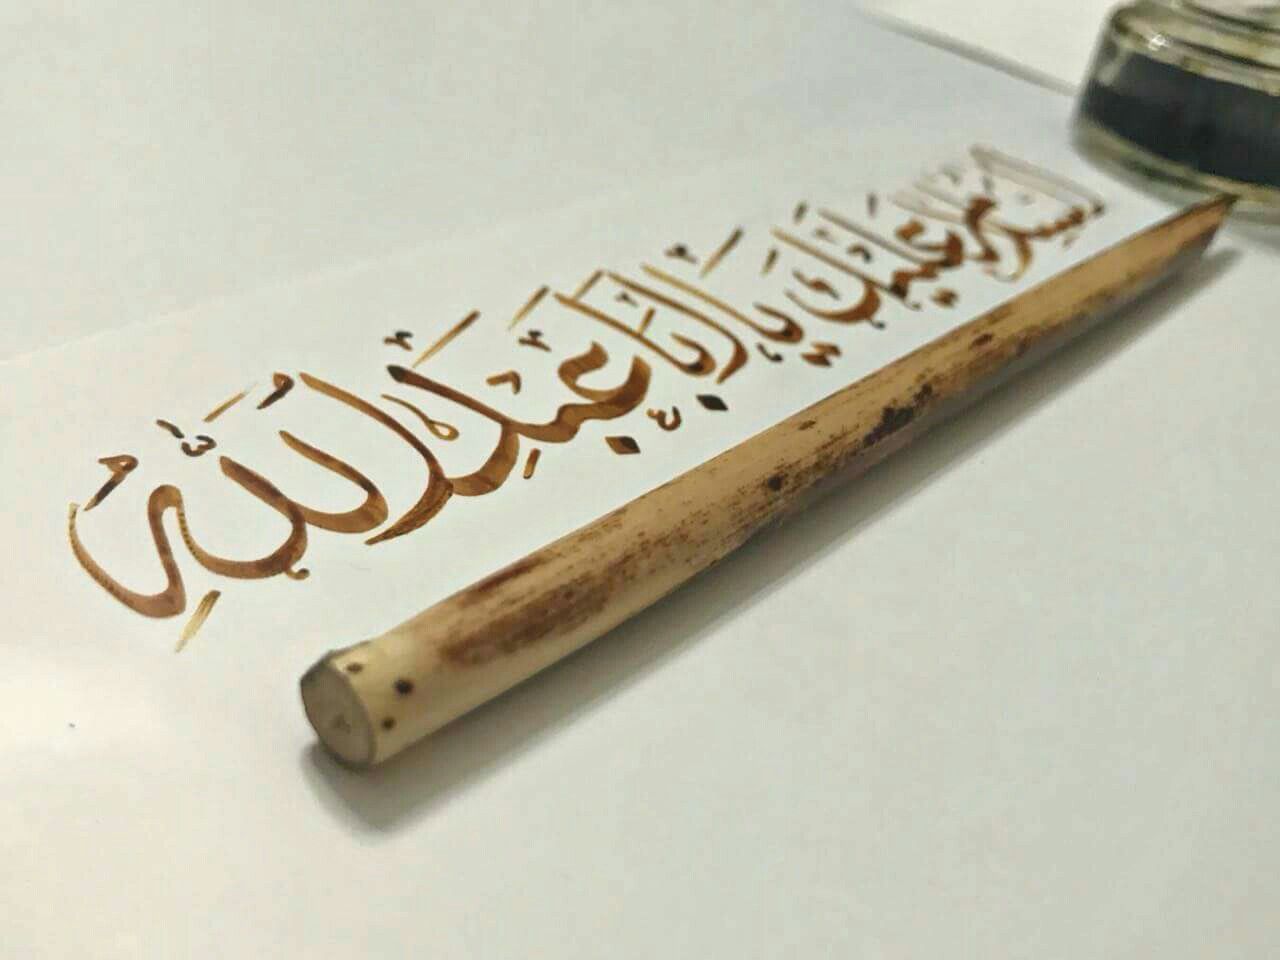 السلام عليك يا أبا عبد الله